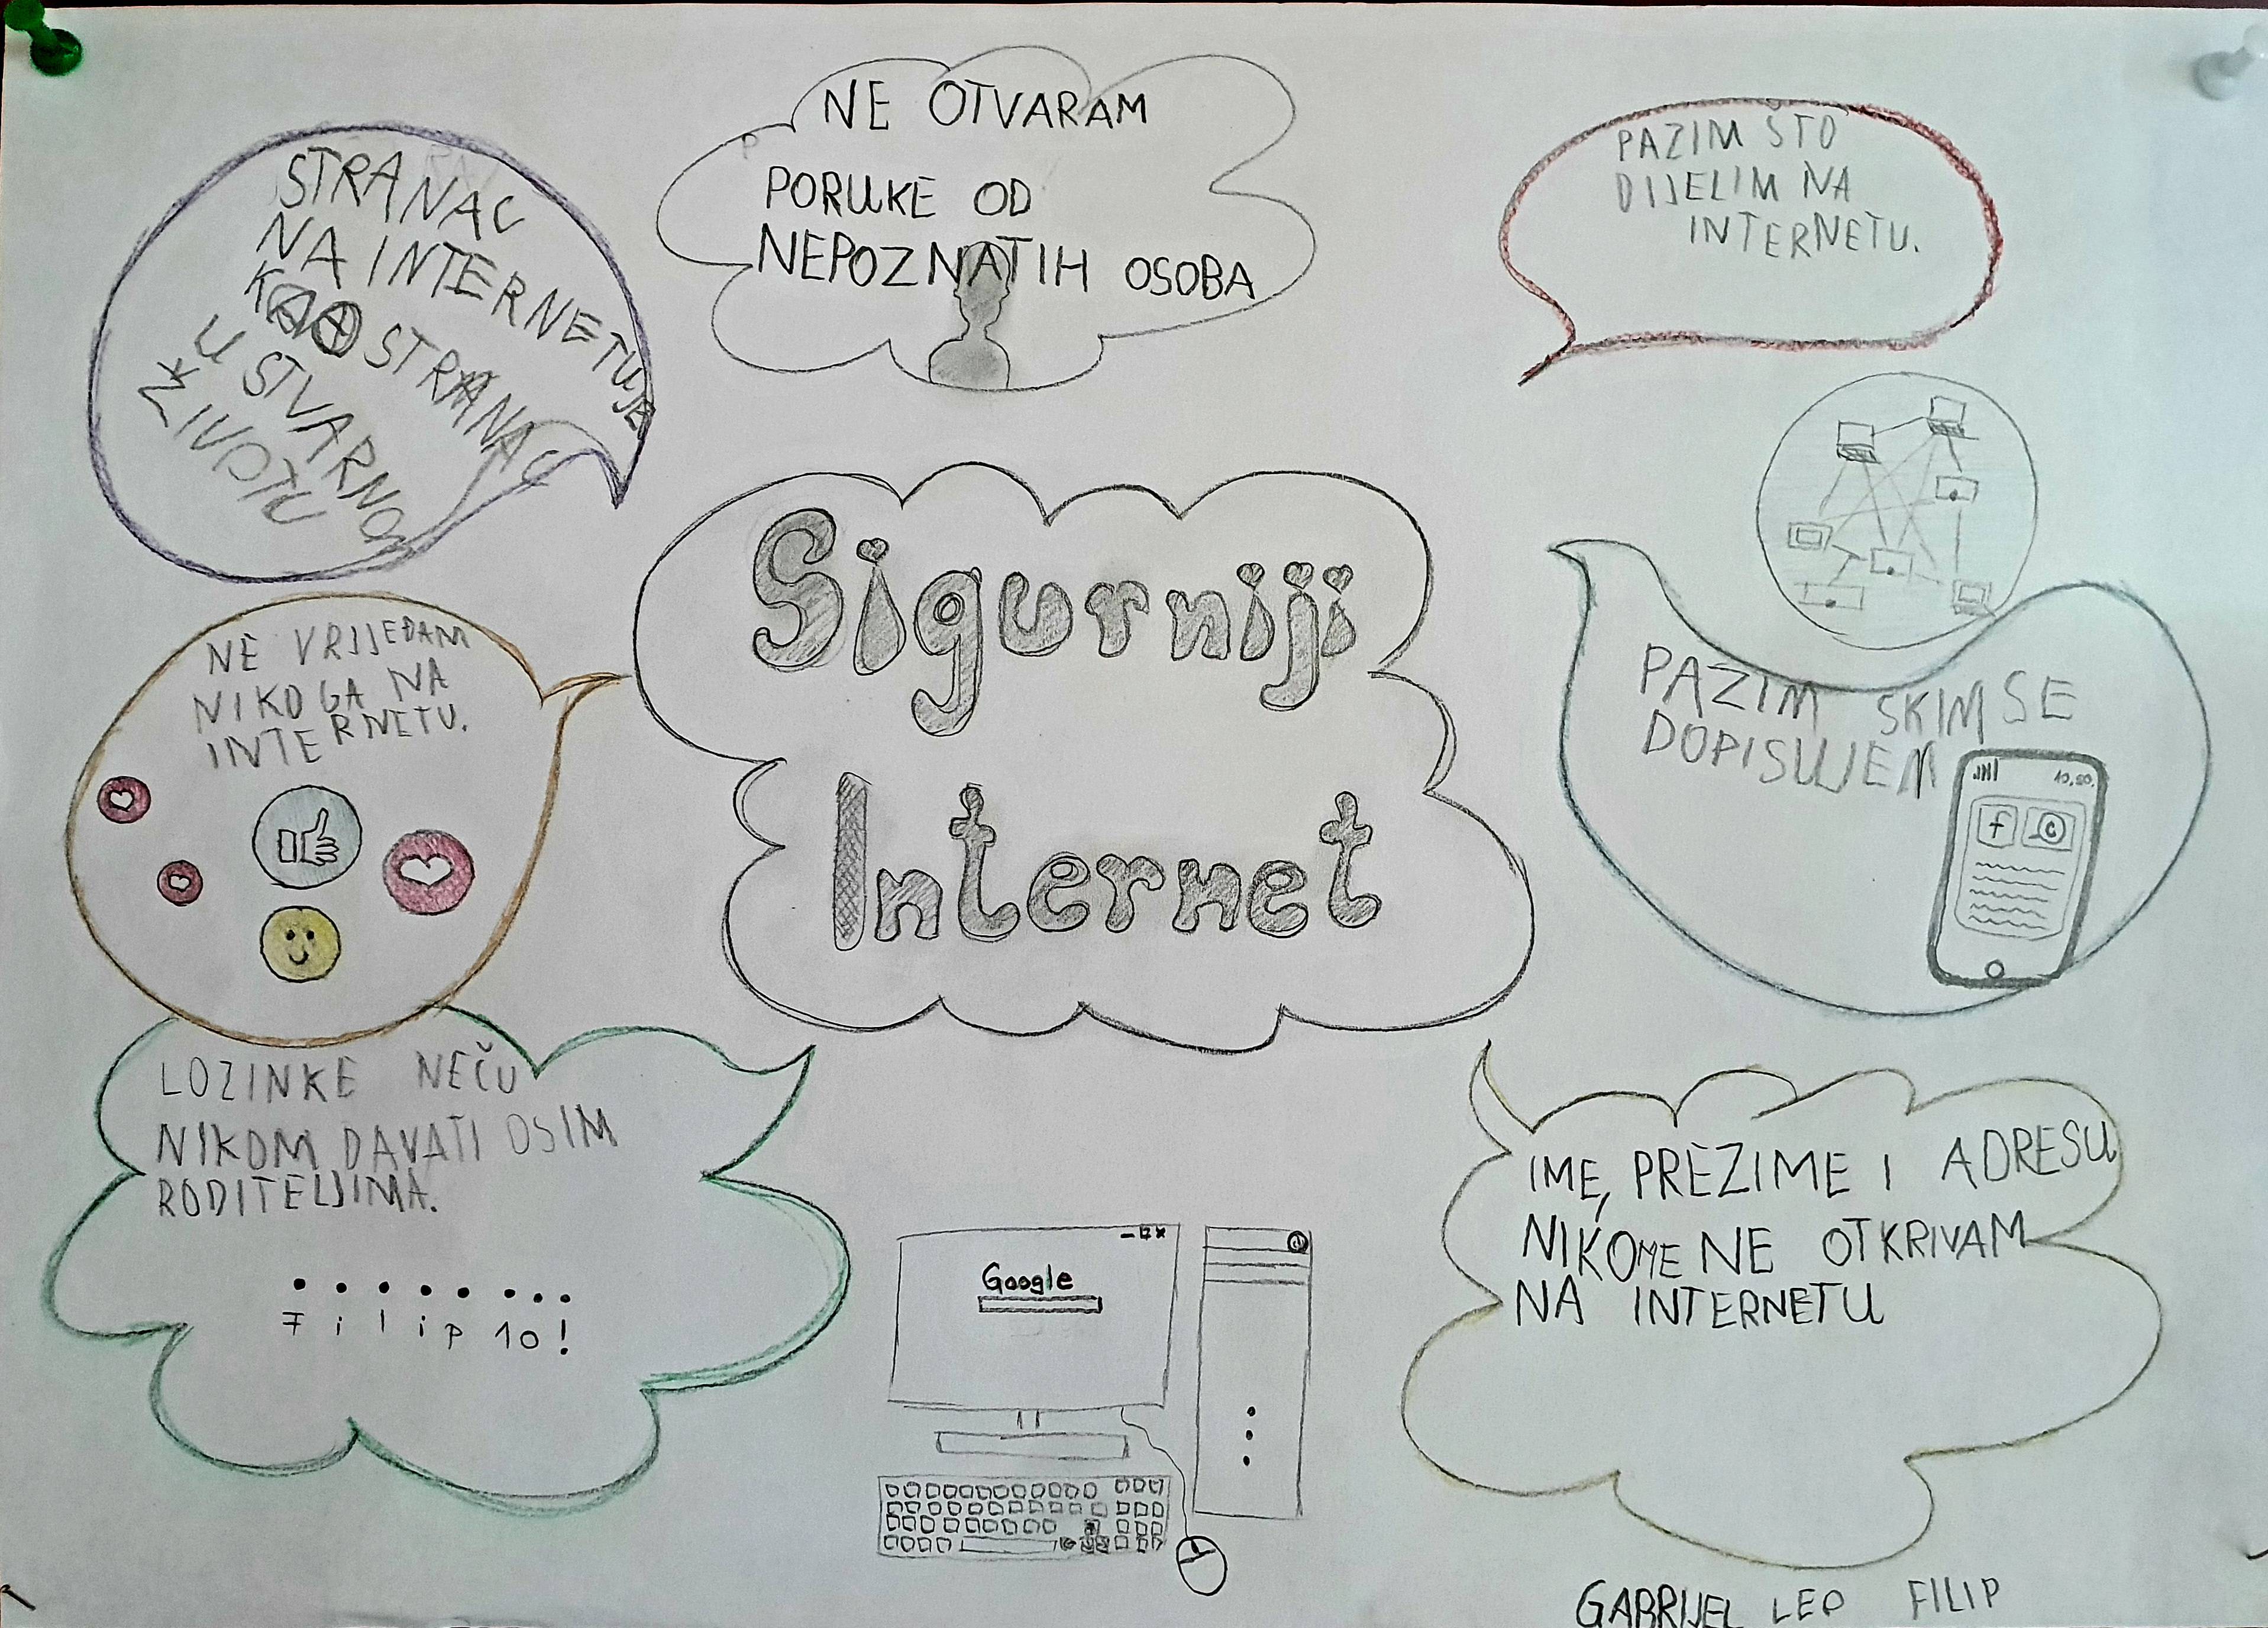 STRANAC
NA INTERNETU JE
KAO STRANAC
U STVARNOM
ŽIVOTU
NE OTVARAM
PORUKE OD
NEPOZNATIH OSOBA
PAZIM ŠTO
DIJELIM NA
INTERNETU.
Sigurniji
Internet
NE VRIJEĐAM
NIKOGA NA
INTERNETU.
PAZIM SKIM SE
DOPISUJEM
10,20
f
LOZINKE NEČU
NIKOM DAVATI OSIM
RODITELJIMA.
Filip10!
Google
IME, PREZIME I ADRESU
NIKOME NE OTKRIVAM
NA INTERNETU
GABRIJEL LEO FILIP